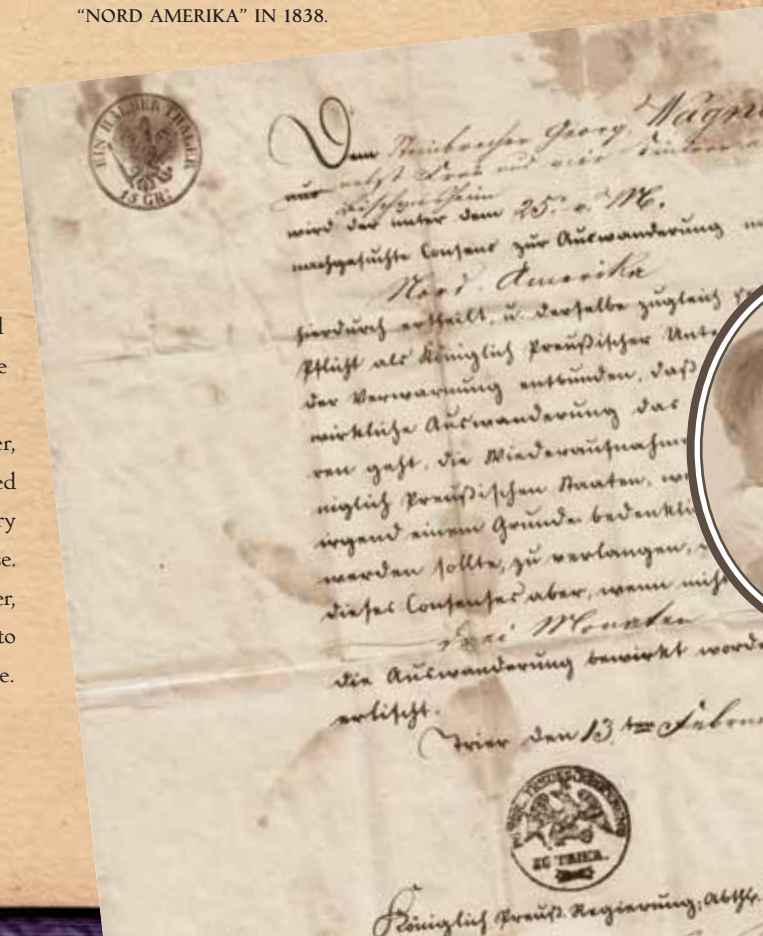 "NORD AMERIKA" IN 1838.
EIN HALBER THALER
15 GR:
Dem Steinbrecher Georg Wagn
aus nebst Frau und vier Kindern
Bischmisheim
wird der unter dem 25. v. M.
nachgesuchte Consens zur Auswanderung
Nord Amerika
hierdurch ertheilt, u. derselbe zugleich
Pflicht als Königlich Preußischer Unte
der Verwarnung entbunden, daß
wirkliche Auswanderung das
ren geht, die Wiederaufnahm
niglich Preußischen Staaten, w
irgend einem Grunde bedenkli
werden sollte, zu verlangen,
dieses Consenses aber, wenn nicht
drei Monaten
die Auswanderung bewirkt word
erlischt.
Trier den 13ten Februa
ZU TRIER.
Königlich Preuß. Regierung; Abthl.
er,
ed
ry
e.
er,
to
e.